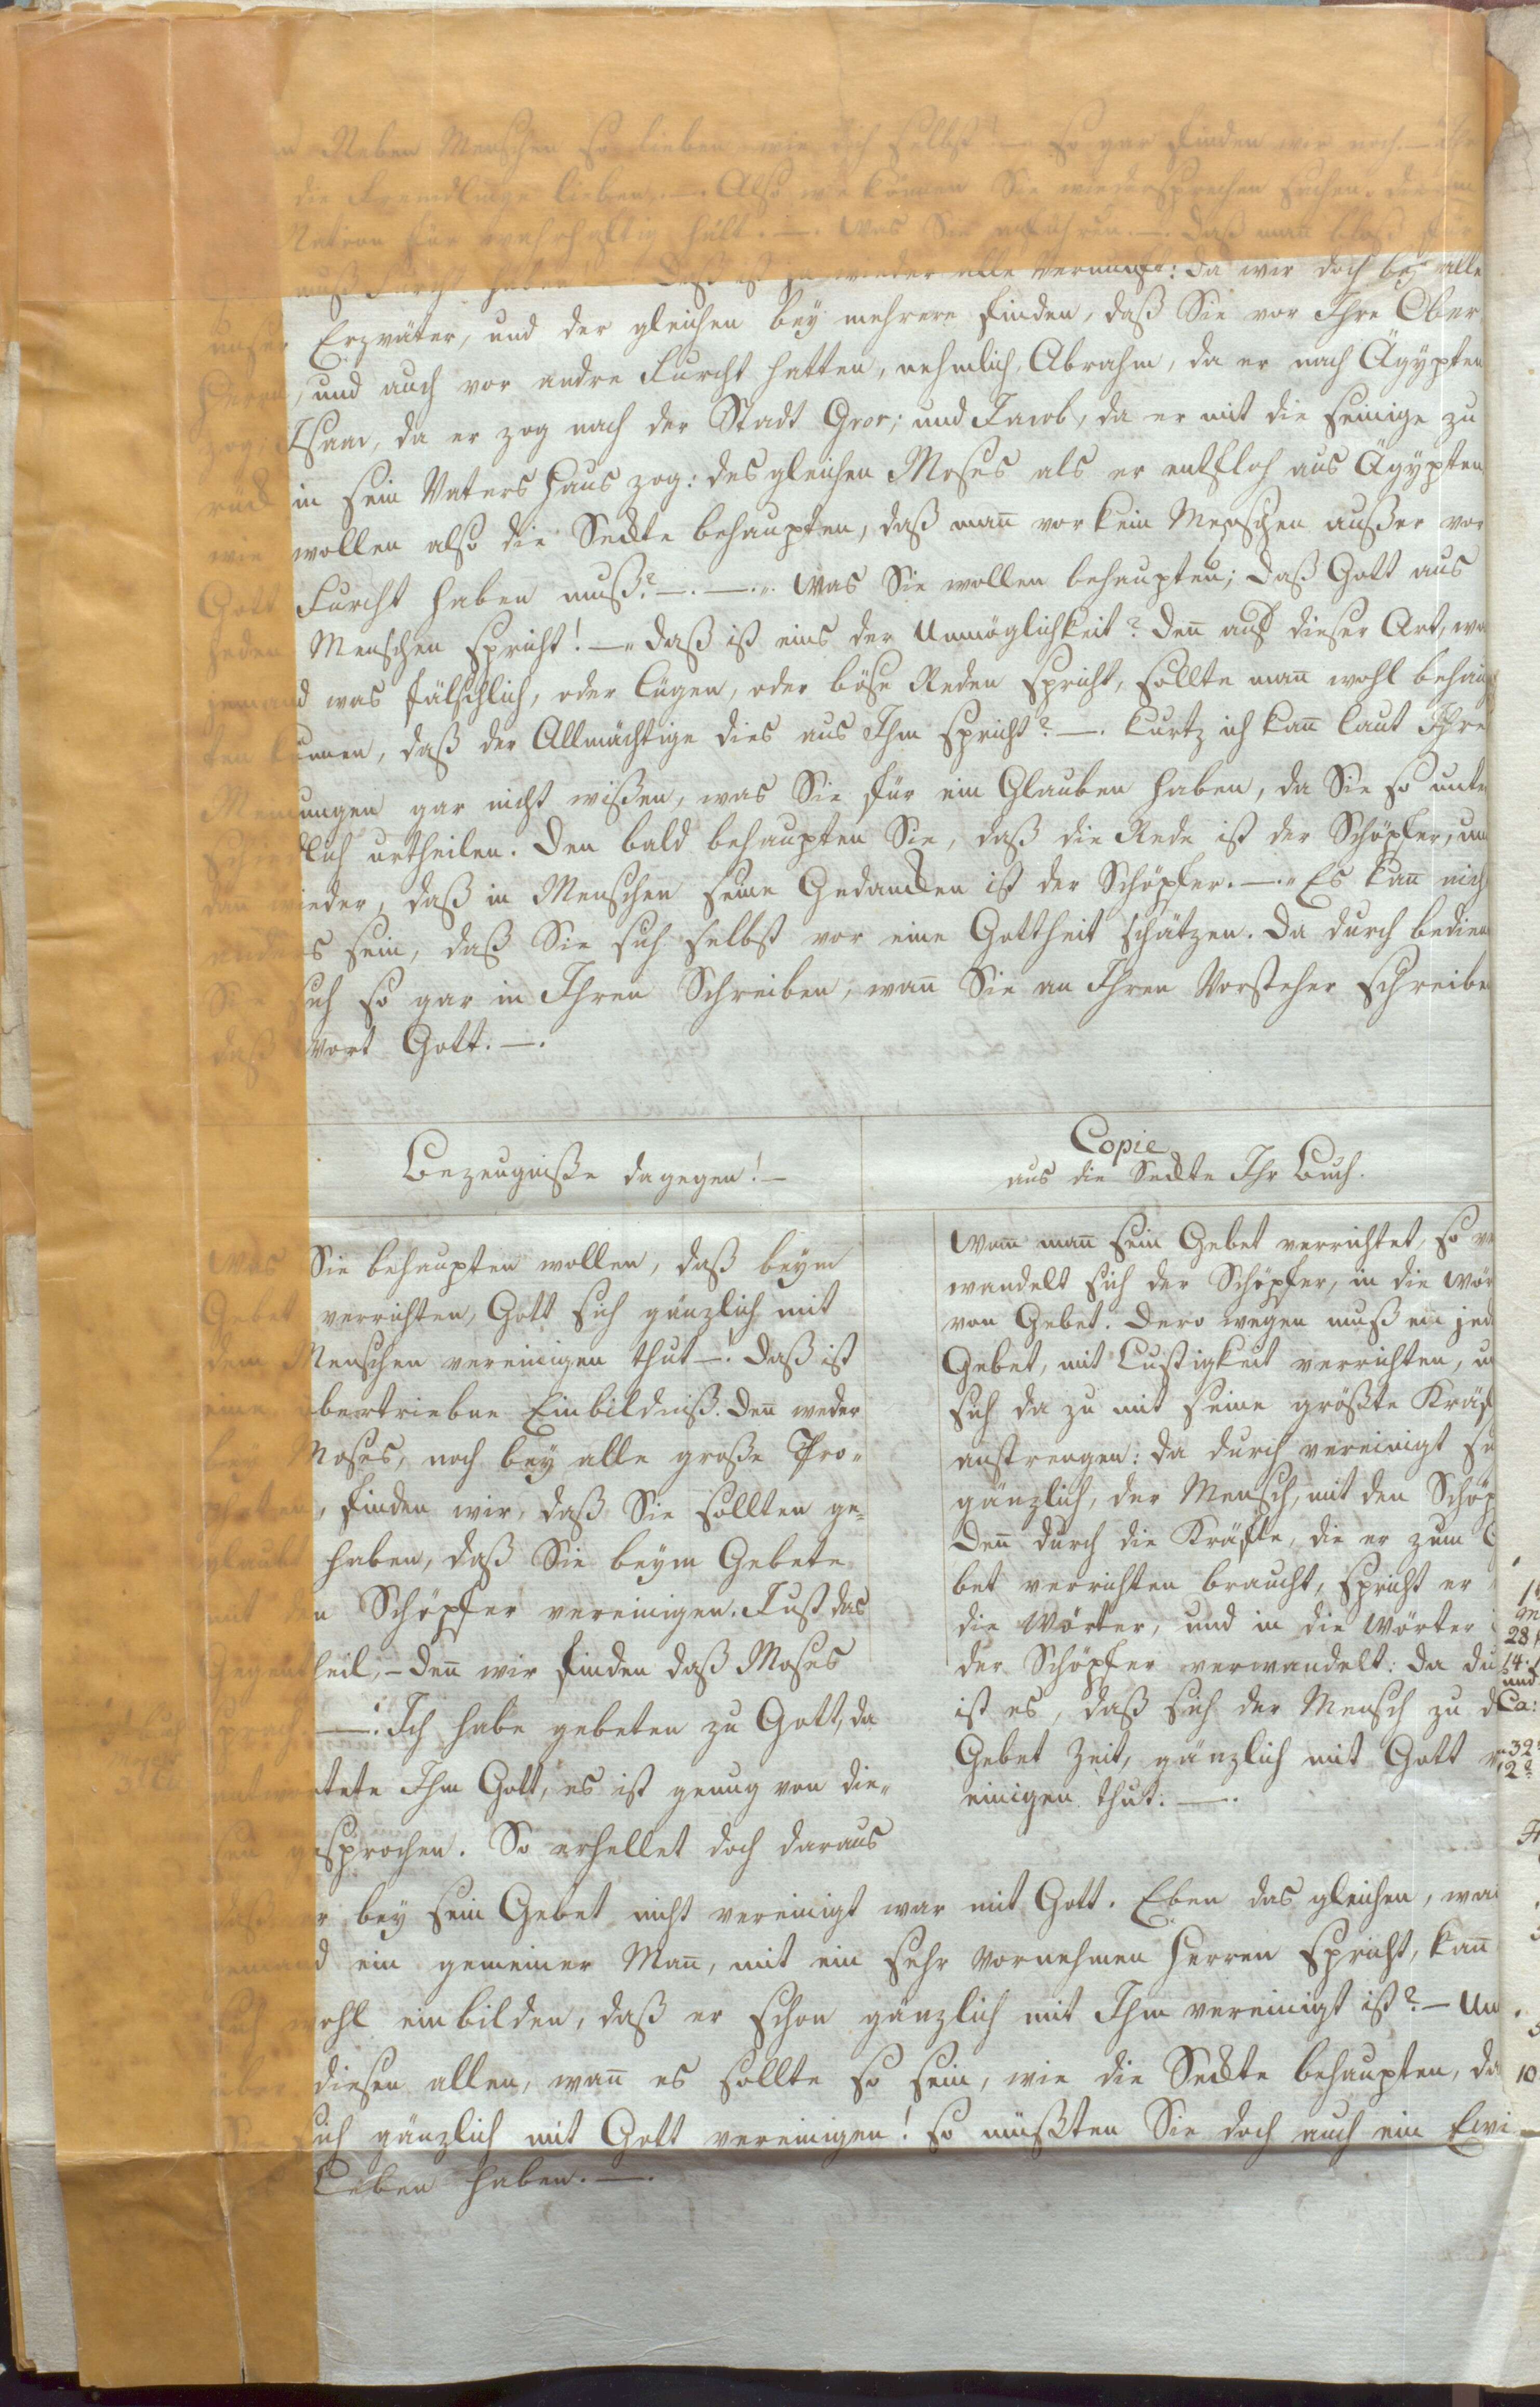 Neben Menschen so lieben wie dich selbst so gar finden wir noch
die Fremdlinge lieben. Also wie können Sie wiedersprechen
Nation für wahrhaftig hält. Was Sie anführen. daß man bloß für
muß Furcht haben Daß ist ja wieder alle Vernunft: da wir doch bey alle
unser Erzväter, und der gleichen bey mehrere finden, daß Sie vor Ihre Ober
Herrn, und auch vor andre Furcht hatten, nehmlich, Abrahm, da er nach Ägypten
zog; Isaac, da er zog nach der Stadt Gror; und Jacob, da er mit die seinige zu
rück in sein Vaters Haus zog: des gleichen Moses als er entfloh aus Ägypten
wie wollen also die Seckte behaupten, daß mañ vor kein Menschen außer vor
Gott Furcht haben muß? —. —. Was Sie wollen behaupten; daß Gott aus
jeden Menschen spricht! — daß ist eins der Unmöglichkeit? deñ auf dieser Art, wa
jemand was fälschlich, oder Lügen, oder böse Reden spricht, sollte mañ wohl behaup
ten können, daß der Allmächtige dies aus Ihm spricht? —. Kurtz ich kañ laut Ihre
Meinungen gar nicht wißen, was Sie für ein Glauben haben, da Sie so unter
schiedlich urtheilen. Den bald behaupten Sie, daß die Rede ist der Schöpfer, un
dañ wieder, daß in Menschen seine Gedancken ist der Schöpfer. —. Es kañ nich
anders sein, daß Sie sich selbst vor eine Gottheit schätzen. Da durch bedien
Sie sich so gar in Ihren Schreiben, wañ Sie an Ihren Vorsteher schreibe
daß Wort Gott. —.
Bezeugniße dagegen! —
Was Sie behaupten wollen, daß beym
Gebet verrichten, Gott sich gänzlich mit
dem Menschen vereinigen thut —! daß ist
eine übertriebne Einbildniß. Deñ weder
bey Moses, noch bey alle große Pro-
pheten, finden wir, daß Sie sollten ge-
glaubt haben, daß Sie beym Gebete
mit den Schöpfer vereinigen. Just das
Gegentheil, — deñ wir finden daß Moses
sprach. —: Ich habe gebeten zu Gott, da
antwortete Ihm Gott, es ist genug von die-
sen gesprochen. So erhellet doch daraus
Copie
aus die Seckte Ihr Buch.
Wañ mañ sein Gebet verrichtet, so ve
wandelt sich der Schöpfer, in die Wör
von Gebet. Dero wegen muß ein jed
Gebet, mit Lustigkeit verrichten, u
sich da zu mit seine größte Kräf
anstrengen: da durch vereinigt s
gänzlich, der Mensch, mit den Schöp
Deñ durch die Kräfte, die er zum G
bet verrichten braucht, spricht er
die Wörter, und in die Wörter i
der Schöpfer verwandelt: da du
ist es, daß sich der Mensch zu d
Gebet Zeit, gänzlich mit Gott v
einigen thut. —.
daß er bey sein Gebet nicht vereinigt war mit Gott. Eben das gleichen, wa
jemand ein gemeiner Mañ, mit ein sehr vornehmen Herren spricht, kañ
sich wohl einbilden, daß er schon gänzlich mit Ihm vereinigt ist? — Un
über diesen allen, wañ es sollte so sein, wie die Seckte behaupten, da
Sie sich gänzlich mit Gott vereinigen! so müßten Sie doch auch ein Ewi
Leben haben. —.
28
14.
und
Ca:
32
2
10